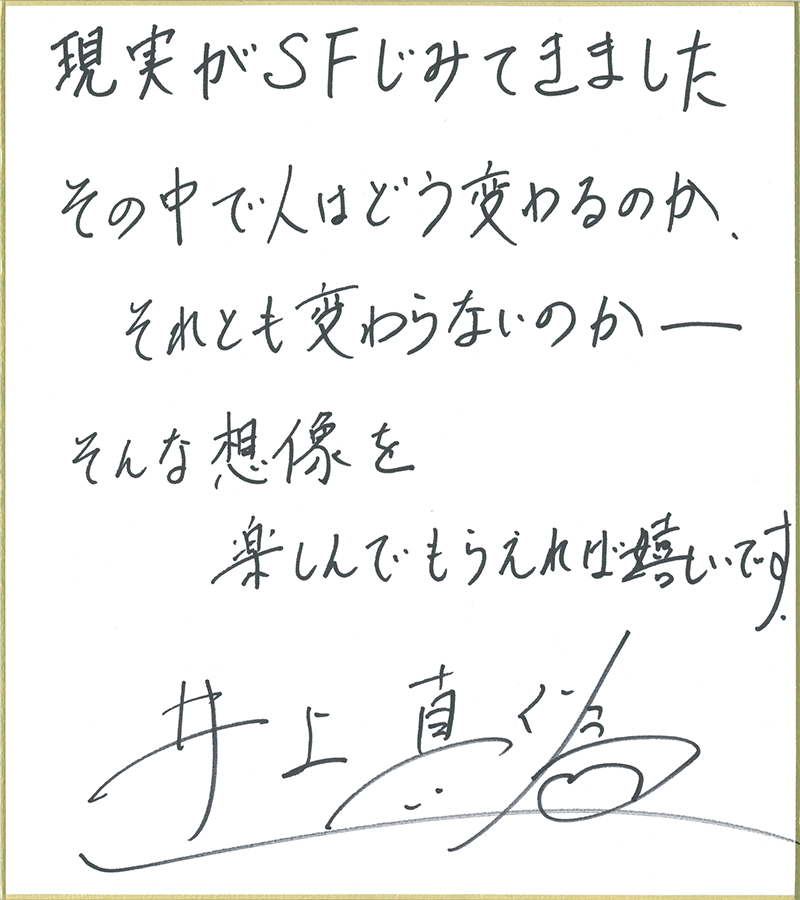 現実がSFじみてきました
その中で人はどう変わるのか、
それとも変わらないのか――
そんな想像を
楽しんでもらえれば嬉しいです.
井上真偽